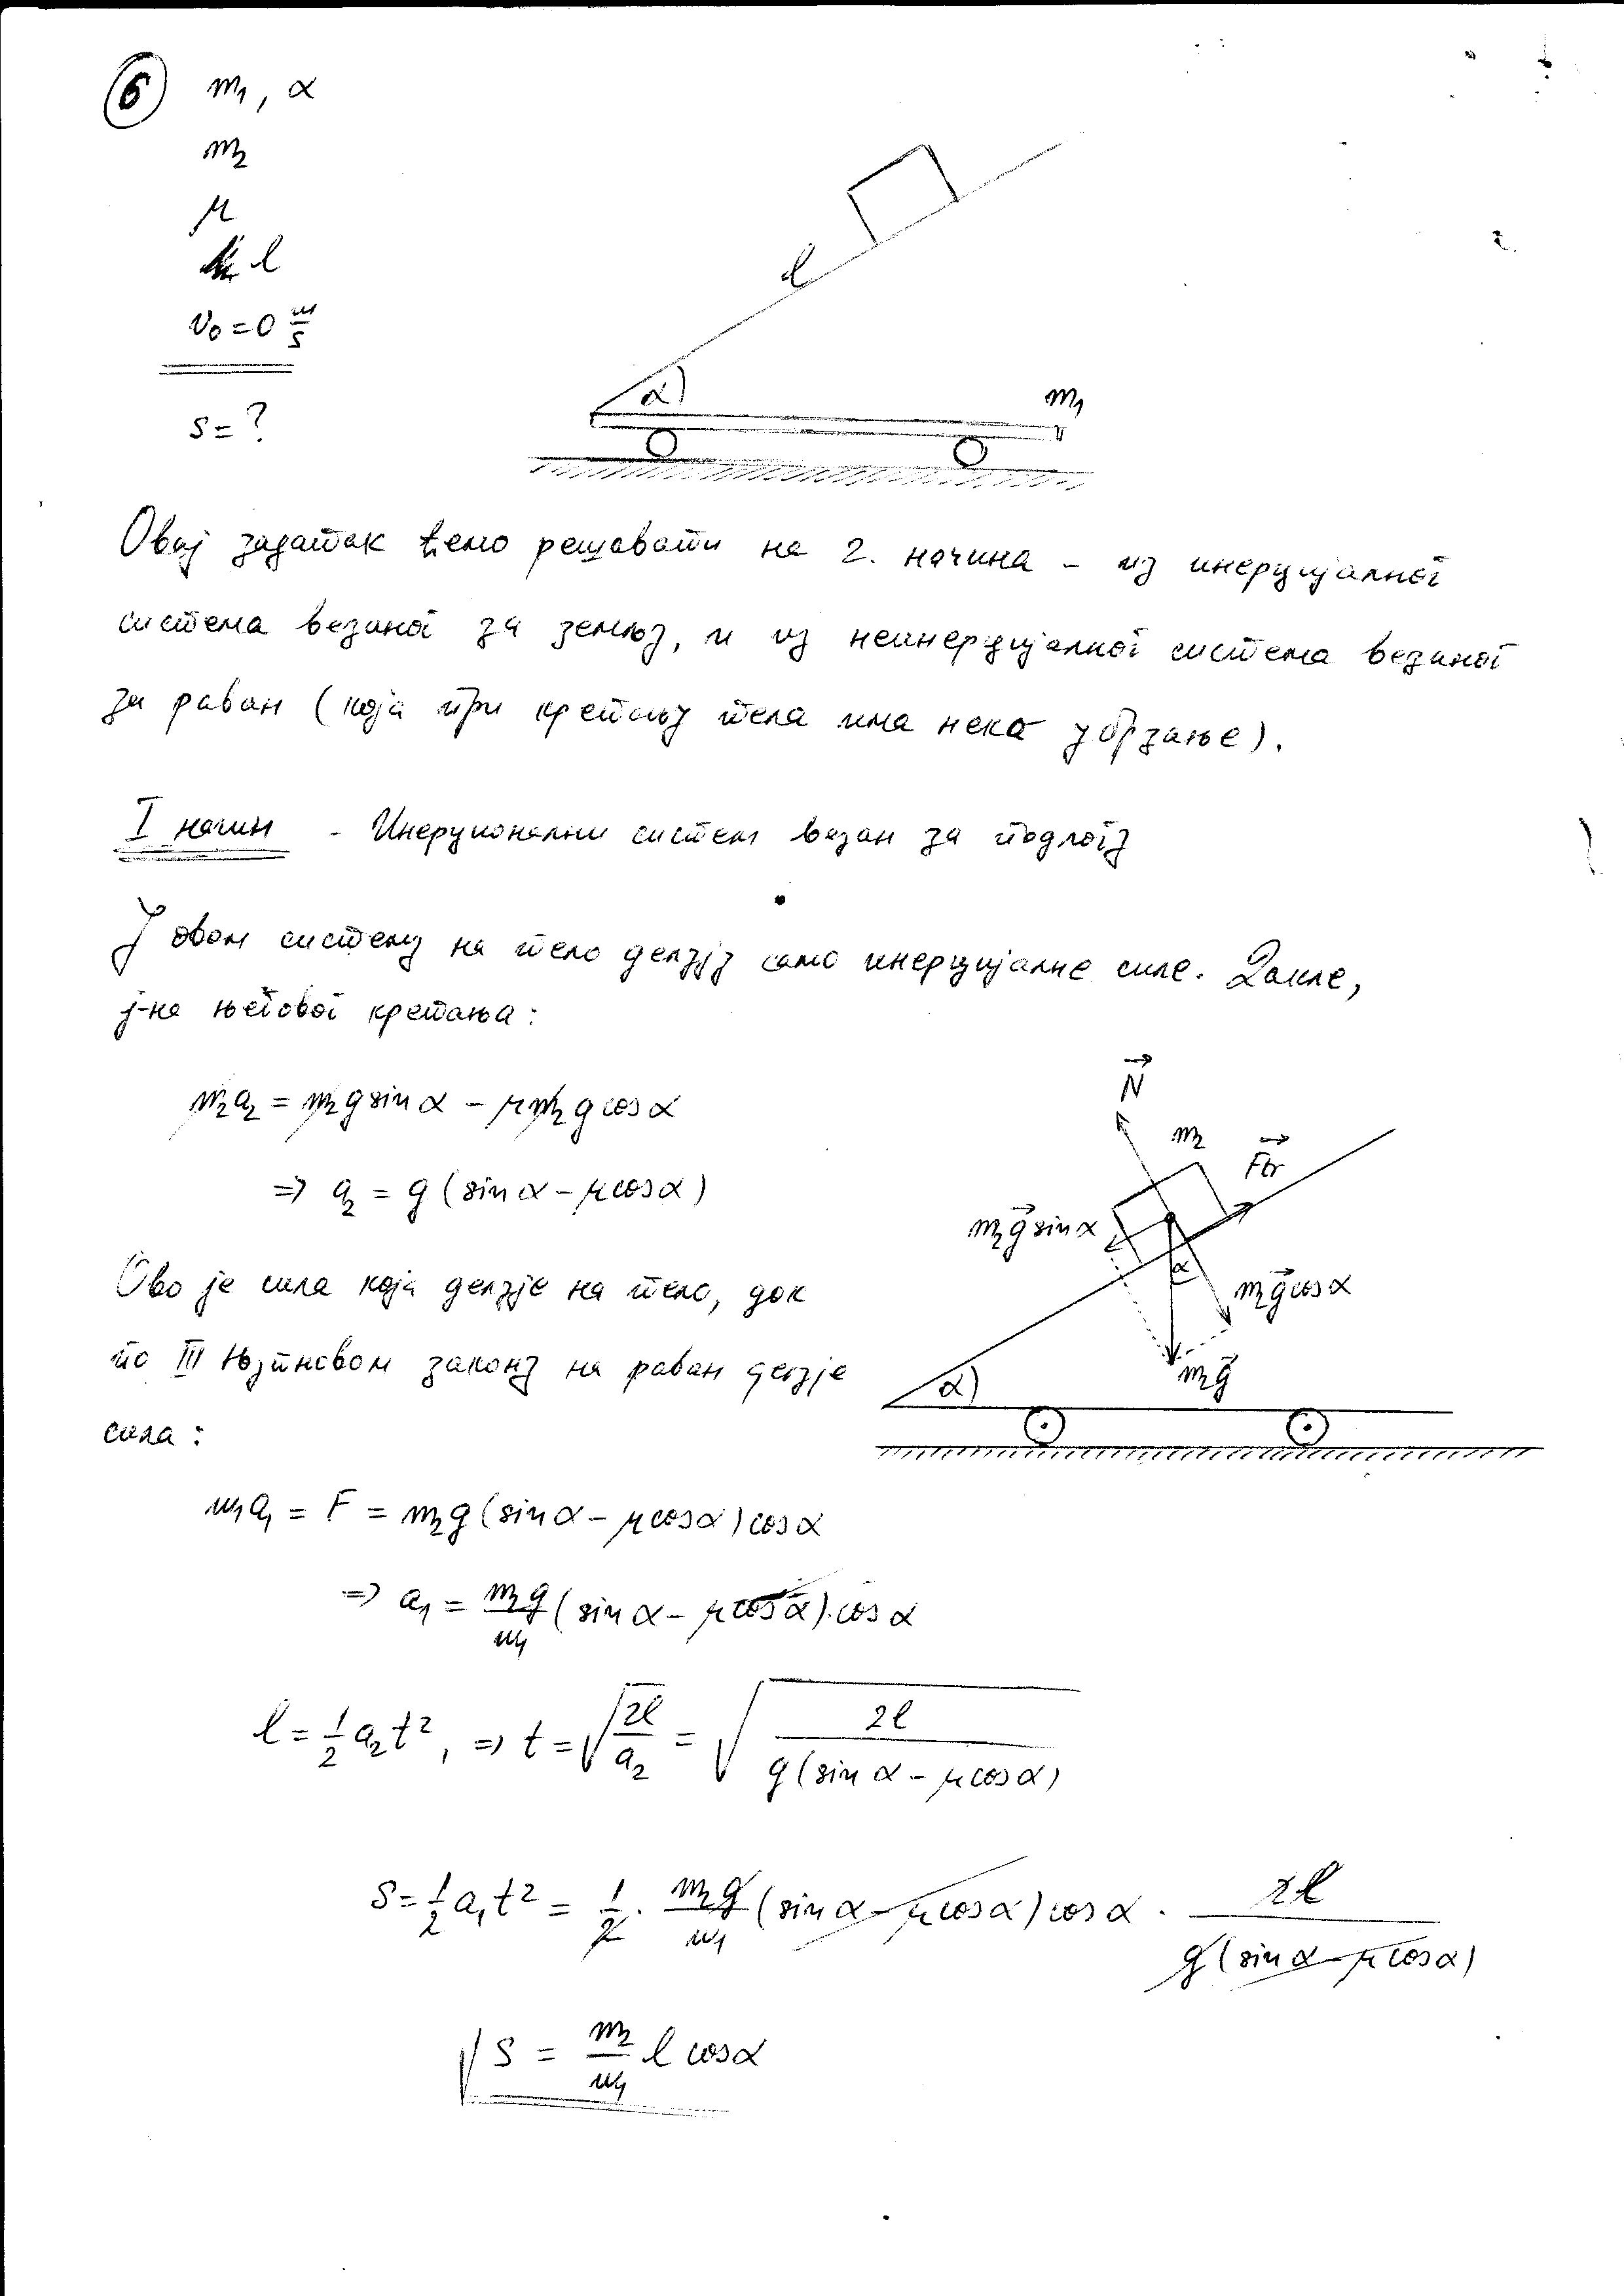 6 m₁, α
m₂
μ
l
v₀ = 0 m/s
s = ?
l
α
m₁
Овај задатак ћемо решавати на 2. начина - из инерцијалног
система везаног за земљу, и из неинерцијалног система везаног
за раван (која при кретању тела има неко убрзање).
I начин - Инерционални систем везан за подлогу
У овом систему на тело делују само инерцијалне силе. Дакле,
ј-на његовог кретања:
m₂a₂ = m₂g sin α - μm₂g cos α
=> a₂ = g (sin α - μ cos α)
N
m₂
Ftr
m₂g sin α
α
m₂g cos α
m₂g
α
Ово је сила која делује на тело, док
по III Њутновом закону на раван делује
сила:
m₁a₁ = F = m₂g (sin α - μ cos α) cos α
=> a₁ = m₂g/m₁ (sin α - μ cos α) · cos α
l = 1/2 a₂t², => t = √(2l/a₂) = √(2l/(g (sin α - μ cos α)))
s = 1/2 a₁t² = 1/2 · m₂g/m₁ (sin α - μ cos α) cos α · 2l/(g (sin α - μ cos α))
s = m₂/m₁ l cos α